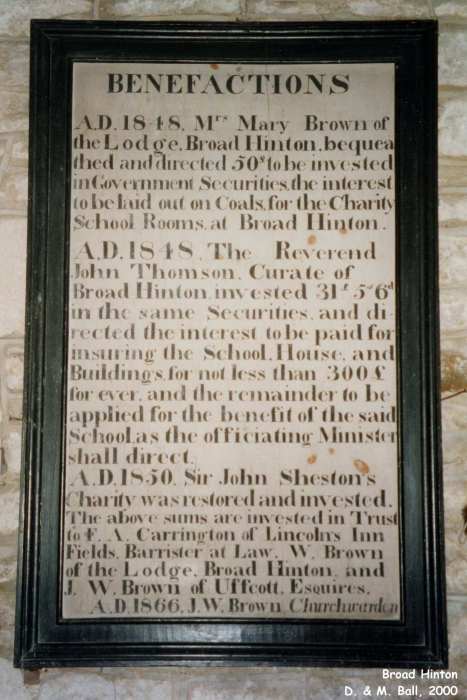 BENEFACTIONS
A.D. 1848, Mrs Mary Brown of
the Lodge, Broad Hinton, bequea
thed and directed 50£ to be invested
in Government Securities, the interest
to be laid out on Coals, for the Charity
School Rooms, at Broad Hinton.
A.D. 1848, The Reverend
John Thomson, Curate of
Broad Hinton, invested 31£ 5s 6d
in the same Securities, and di-
rected the interest to be paid for
insuring the School, House, and
Buildings, for not less than 300£
for ever, and the remainder to be
applied for the benefit of the said
School, as the officiating Minister
shall direct.
A.D. 1850, Sir John Sheston's
Charity was restored and invested.
The above sums are invested in Trust
to F. A. Carrington of Lincoln's Inn
Fields, Barrister at Law, W. Brown
of the Lodge, Broad Hinton, and
J. W. Brown of Uffcott, Esquires,
A.D. 1866, J.W. Brown, Churchwarden
Broad Hinton
D. & M. Ball, 2000